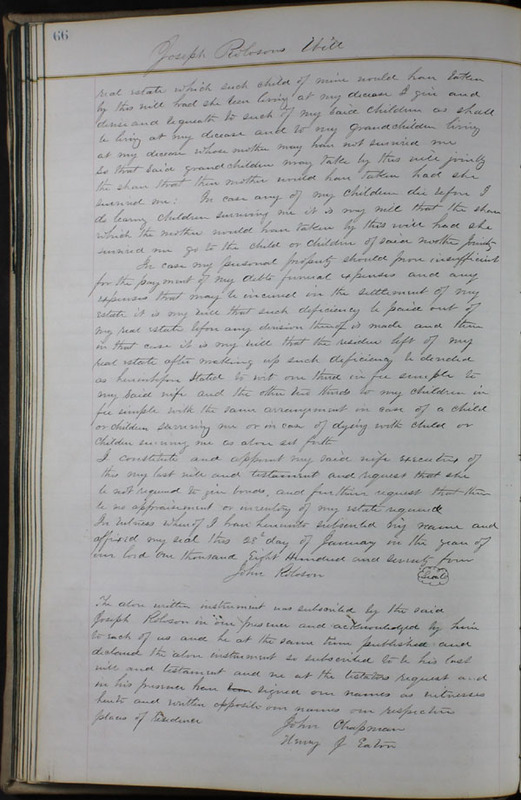 66
Joseph Robsons Will
real estate which such child of mine would have taken
by this will had she been living at my decease I give and
devise and bequeath to such of my said children as shall
be living at my decease and to my grandchildren living
at my decease whose mother may have not survived me
so that said grandchildren may take by this will jointly
the share that their mother would have taken had she
survived me: In case any of my children die before I
do leaving children surviving me it is my will that the share
which the mother would have taken by this will had she
survived me go to the child or children of said mother jointly
In case my personal property should prove insufficient
for the payment of my debts funeral expenses and any
expenses that may be incurred in the settlement of my
estate it is my will that such deficiency be paid out of
my real estate before any division thereof is made and then
in that case it is my will that the residue left of my
real estate after making up such deficiency be divided
as hereinbefore stated to wit one third in fee simple to
my said wife and the other two thirds to my children in
fee simple with the same arrangement in case of a child
or children surviving me or in case of dying with child or
children surviving me as above set forth
I constitute and appoint my said wife executrix of
this my last will and testament and request that she
be not required to give bonds, and further request that there
be no appraisement or inventory of my estate required
In witness whereof I have hereunto subscribed my name and
affixed my seal this 28th day of January in the year of
our lord one thousand Eight Hundred and seventy four
John Robson Seal
The above written instrument was subscribed by the said
Joseph Robson in our presence and acknowledged by him
to each of us and he at the same time published and
declared the above instrument so subscribed to be his last
will and testament and we at the testators request and
in his presence have signed our names as witnesses
hereto and written opposite our names our respective
places of residence John Chapman
Henry J Eaton